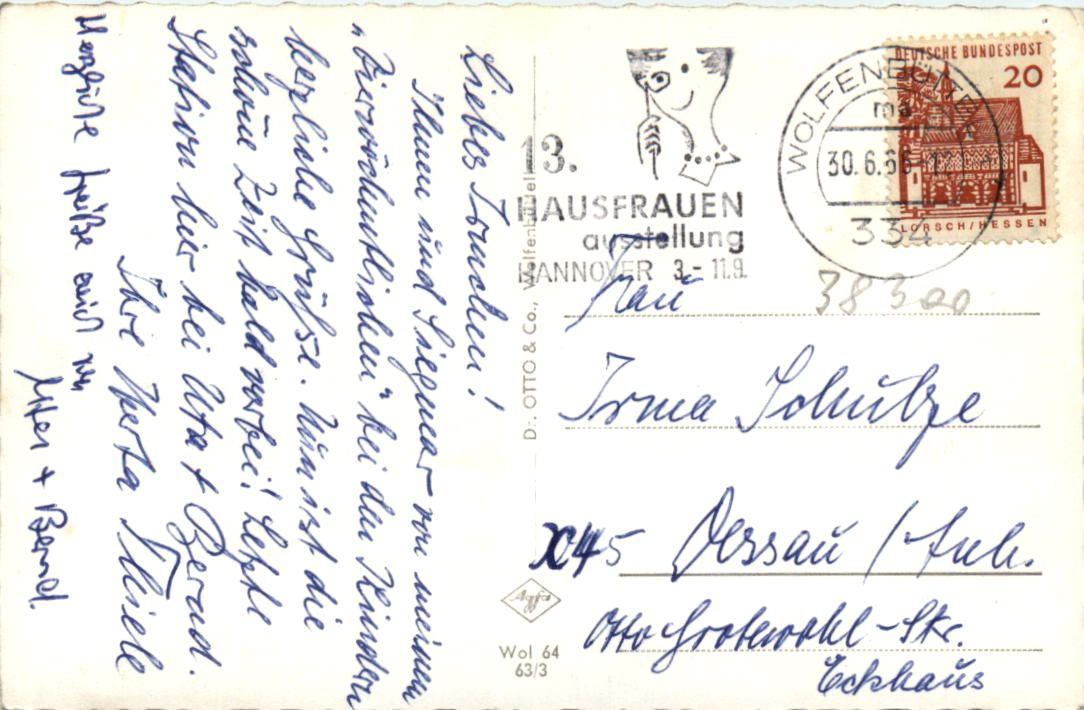 Liebes Irmchen!
Ihnen und Siegmar von meinen
„Vierwöchentlichen" bei den Kindern
herzliche Grüsse. Nun ist die
schöne Zeit bald vorbei! Letzte
Station hier bei Uta + Bernd.
Ihre Herta Thiele
Herzliche Grüße auch von
Uta + Bernd.
D: OTTO & Co., Wolfenbüttel
13.
HAUSFRAUEN
ausstellung
HANNOVER 3.-11.9.
WOLFENBÜTTEL
ma
30.6.66-12
334
DEUTSCHE BUNDESPOST
20
LORSCH/HESSEN
38300
Frau
Irma Schulze
X45 Dessau / Anh.
Otto Grotewohl-Str.
Eckhaus
Agfa
Wol 64
63/3